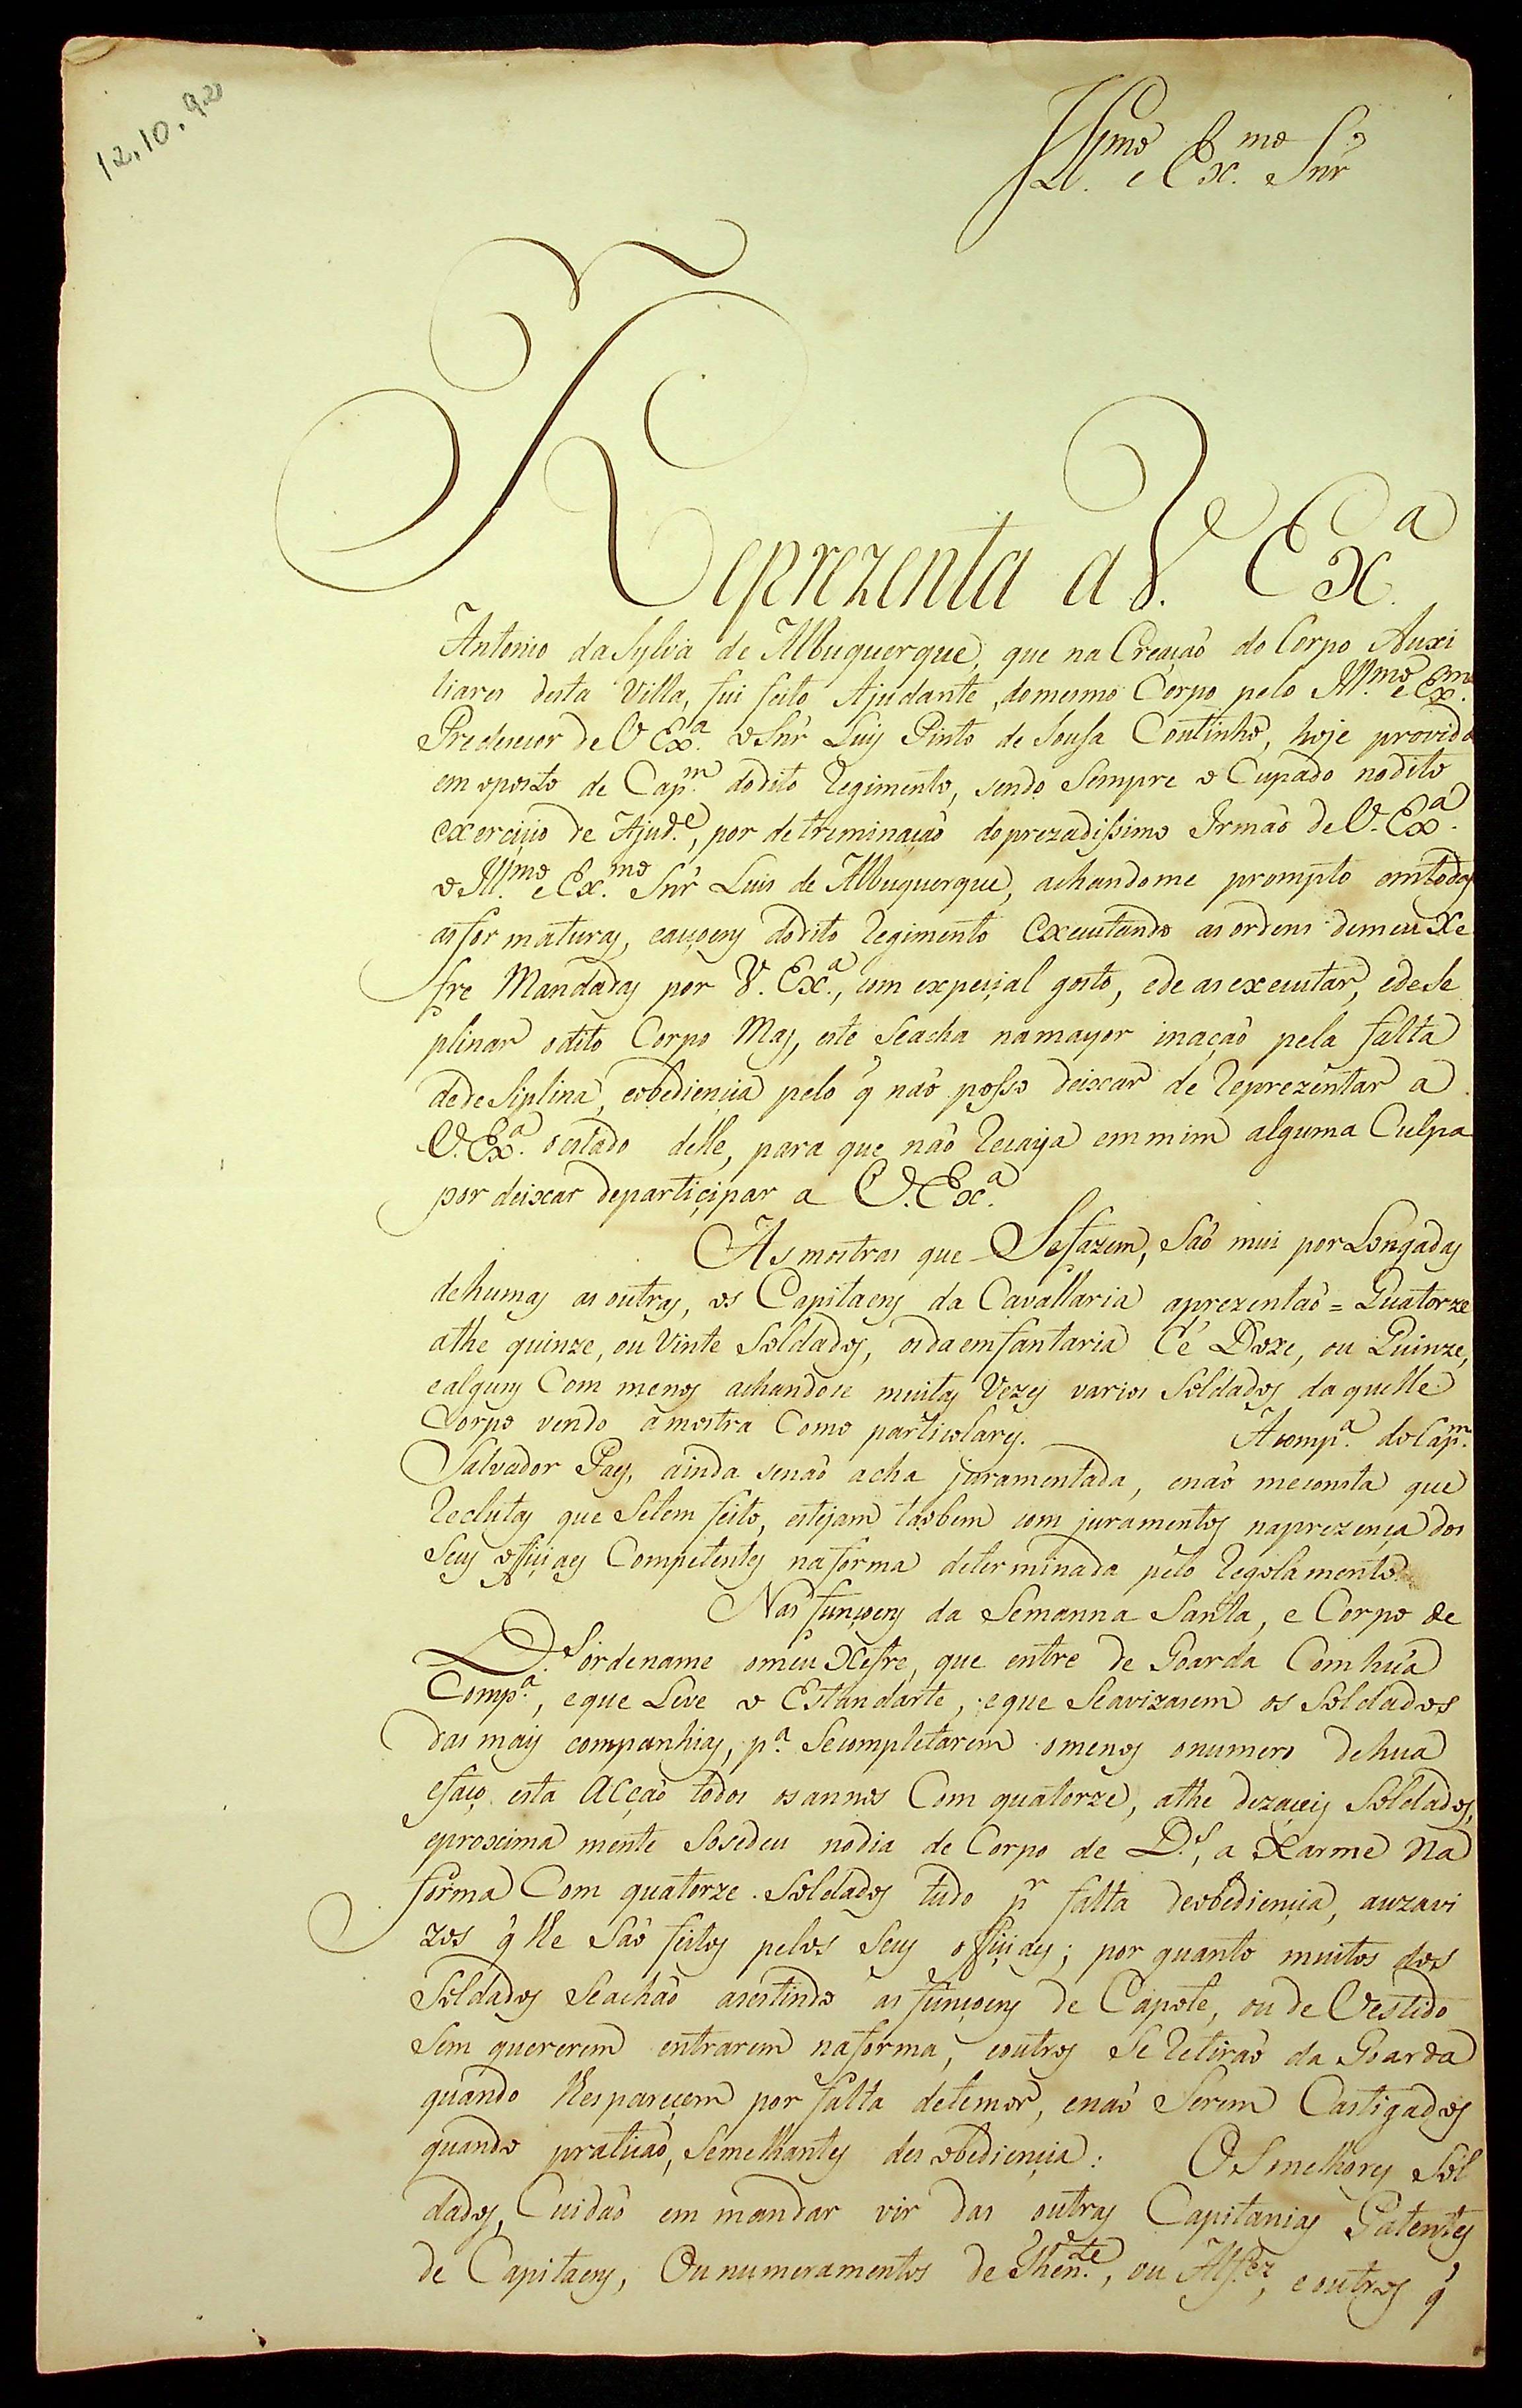 12.10.92
Ill.mo e Ex.mo Snr.
Reprezenta a V. Ex.a
Antonio da Sylva de Albuquerque, que na Creaçaõ do Corpo Auxi
liares desta Villa, fui feito Ajudante, domesmo Corpo pelo Ill.mo e Ex.mo
Predecesor de V Ex.a o Snr Luiz Pinto de Sousa Coutinho, hoje provido
em oposto de Cap.m dodito Regimento, sendo Sempre o Cupado nodito
exerciçio de Ajud.e, por detreminaçaõ doprezadissimo Irmaõ de V. Ex.a
o Ill.mo e Ex.mo Snr Luis de Albuquerque, achandome prompto emtodas
asfor maturas, eaçoens dodito Regimento Executando as ordens demeu Xe
fre Mandadas por V. Ex.a, com expeçial gosto, ede as executar, edese
plinar odito Corpo Mas, este Seacha namayor inaçaõ pela falta
dede Siplina, eobediençia pelo q̃ naõ posso deixar de Reprezentar a
V. Ex.a oestado delle, para que naõ Recaya emmim alguma Culpa
por deixar departiçipar a V. Ex.a
As mostras que Sefazem, Saõ mui por Longadas
dehumas as outras, os Capitaens da Cavallaria aprezentaõ = Quatorze
athe quinze, ou Vinte Soldados, osdaemfantaria Cé Doze, ou Quinze,
ealguns Com menos achandose muitas Vezes varios Soldados daquelle
Corpo vendo amostra Como particolares. Acomp.a doCap.m
Salvador Paes, ainda senaõ acha juramentada, enaõ meconsta que
Reclutas que Setem feito, estejam taõbem com juramentos naprezença dos
Seus offiçiaes Competentes naforma determinada pelo Regolamento.
Nas funçoens da Semanna Santa, e Corpo de
D.s ordename omeu Xefre, que entre de Goarda Com huã
Comp.a, eque Leve o Estandarte, eque Seavizasem os Soldados
das mais companhias, p.a Secompletarem omenos onumero dehua
efaço esta Acçaõ todos osannos Com quatorze, athe dezaceis Soldados,
eproxima mente Sosedeu nodia de Corpo de D.s, a Xarme Na
forma Com quatorze Soldados tudo p.r falta deobediençia, aozavi
zos q̃ lhe Saõ feitos pelos Seus offiçiaes; por quanto muitos dos
Soldados Seachaõ asestindo as funçoens de Capote, ou de Vestido
Sem quererem entrarem naforma, eoutros Se Retiraõ da Goarda
quando lhespareçem por falta detemor, enaõ Serem Castigados
quando praticaõ, Semelhantes des obediençia: Os melhores Sol
dados, Cuidaõ em mandar vir das outras Capitanias Patentes
de Capitaens, Ou numeramentos de Then.te, ou Alf.ez, e outros q̃